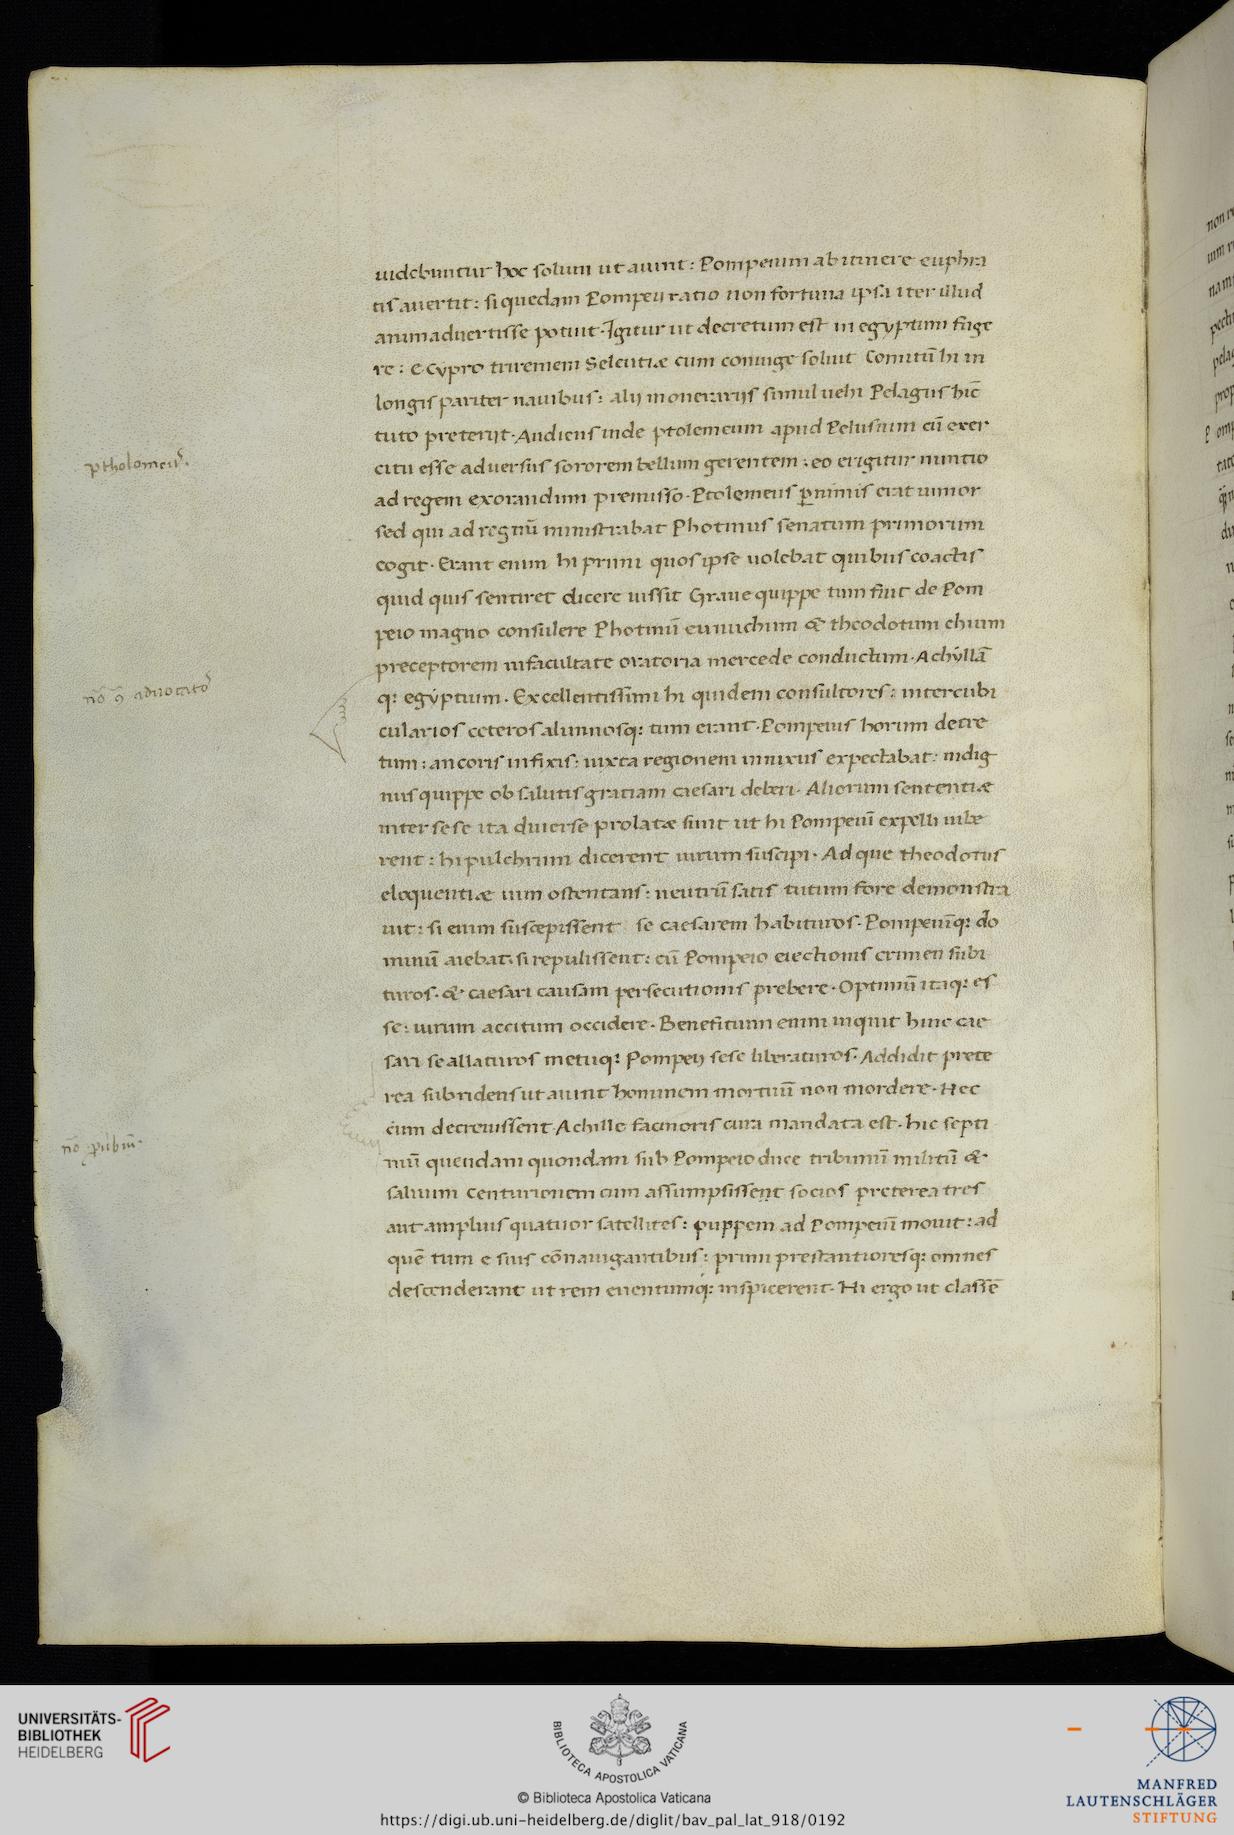 uidebuntur hoc solum ut aiunt: Pompeium ab itinere euphra
tis auertit: si quedam Pompeij ratio non fortuna ipsa iter illud
animaduertisse potuit. Igitur ut decretum est in egyptum fuge
re: e Cypro triremem Seleutiæ cum coniuge soluit Comitũ hi in
longis pariter nauibus: alij in onerarijs simul uehi Pelagus hic̃
tuto preterijt. Audiens inde ptolemeum apud Pelusium cũ exer
ptholomeus.
citu esse aduersus sororem bellum gerentem: eo erigitur nuntio
ad regem exorandum premisso. Ptolemeus ꝑnimis erat iunior
sed qui ad regnũ ministrabat Photinus senatum primorum
cogit. Erant enim hi primi quos ipse uolebat quibus coactis
quid quis sentiret dicere iussit Graue quippe tum fuit de Pom
peio magno consulere Photinũ eunuchum & theodotum chium
preceptorem in facultate oratoria mercede conductum. Achyllã
nõ ꝯ aduocato
q: egyptium. Excellentissimi hi quidem consultores: inter cubi
cularios ceteros alumnosq: tum erant. Pompeius horum decre
tum: ancoris infixis: iuxta regionem innixus expectabat: indig
nus quippe ob salutis gratiam caesari deberi. Aliorum sententiæ
inter sese ita diuerse prolatæ sunt ut hi Pompeiũ expelli iube
rent: hi pulchrum dicerent uirum suscipi. Ad que theodotus
eloquentiæ uim ostentans: neutrũ satis tutum fore demonstra
uit: si enim suscepissent se caesarem habituros. Pompeiũq: do
minũ aiebat. si repulissent: cũ Pompeio eiectionis crimen subi
turos. & caesari causam persecutionis prebere. Optimũ itaq: es
se: uirum accitum occidere. Benefitium enim inquit hinc cae
sari se allaturos metuq: Pompeij sese liberaturos. Addidit prete
rea subridens ut aiunt hominem mortuũ non mordere. Hec
cum decreuissent. Achille facinoris cura mandata est. hic septi
nõ
miũ quendam quondam sub Pompeio duce tribunũ militũ &
saluium centurionem cum assumpsissent socios preterea tres
aut amplius quatuor satellites: puppem ad Pompeiũ mouit: ad
quẽ tum e suis cõnauigantibus: primi prestantioresq: omnes
descenderant ut rem euentumq: inspicerent. Hi ergo ut classẽ
UNIVERSITÄTS-
BIBLIOTHEK
HEIDELBERG
BIBLIOTECA APOSTOLICA VATICANA
© Biblioteca Apostolica Vaticana
https://digi.ub.uni-heidelberg.de/diglit/bav_pal_lat_918/0192
MANFRED
LAUTENSCHLÄGER
STIFTUNG